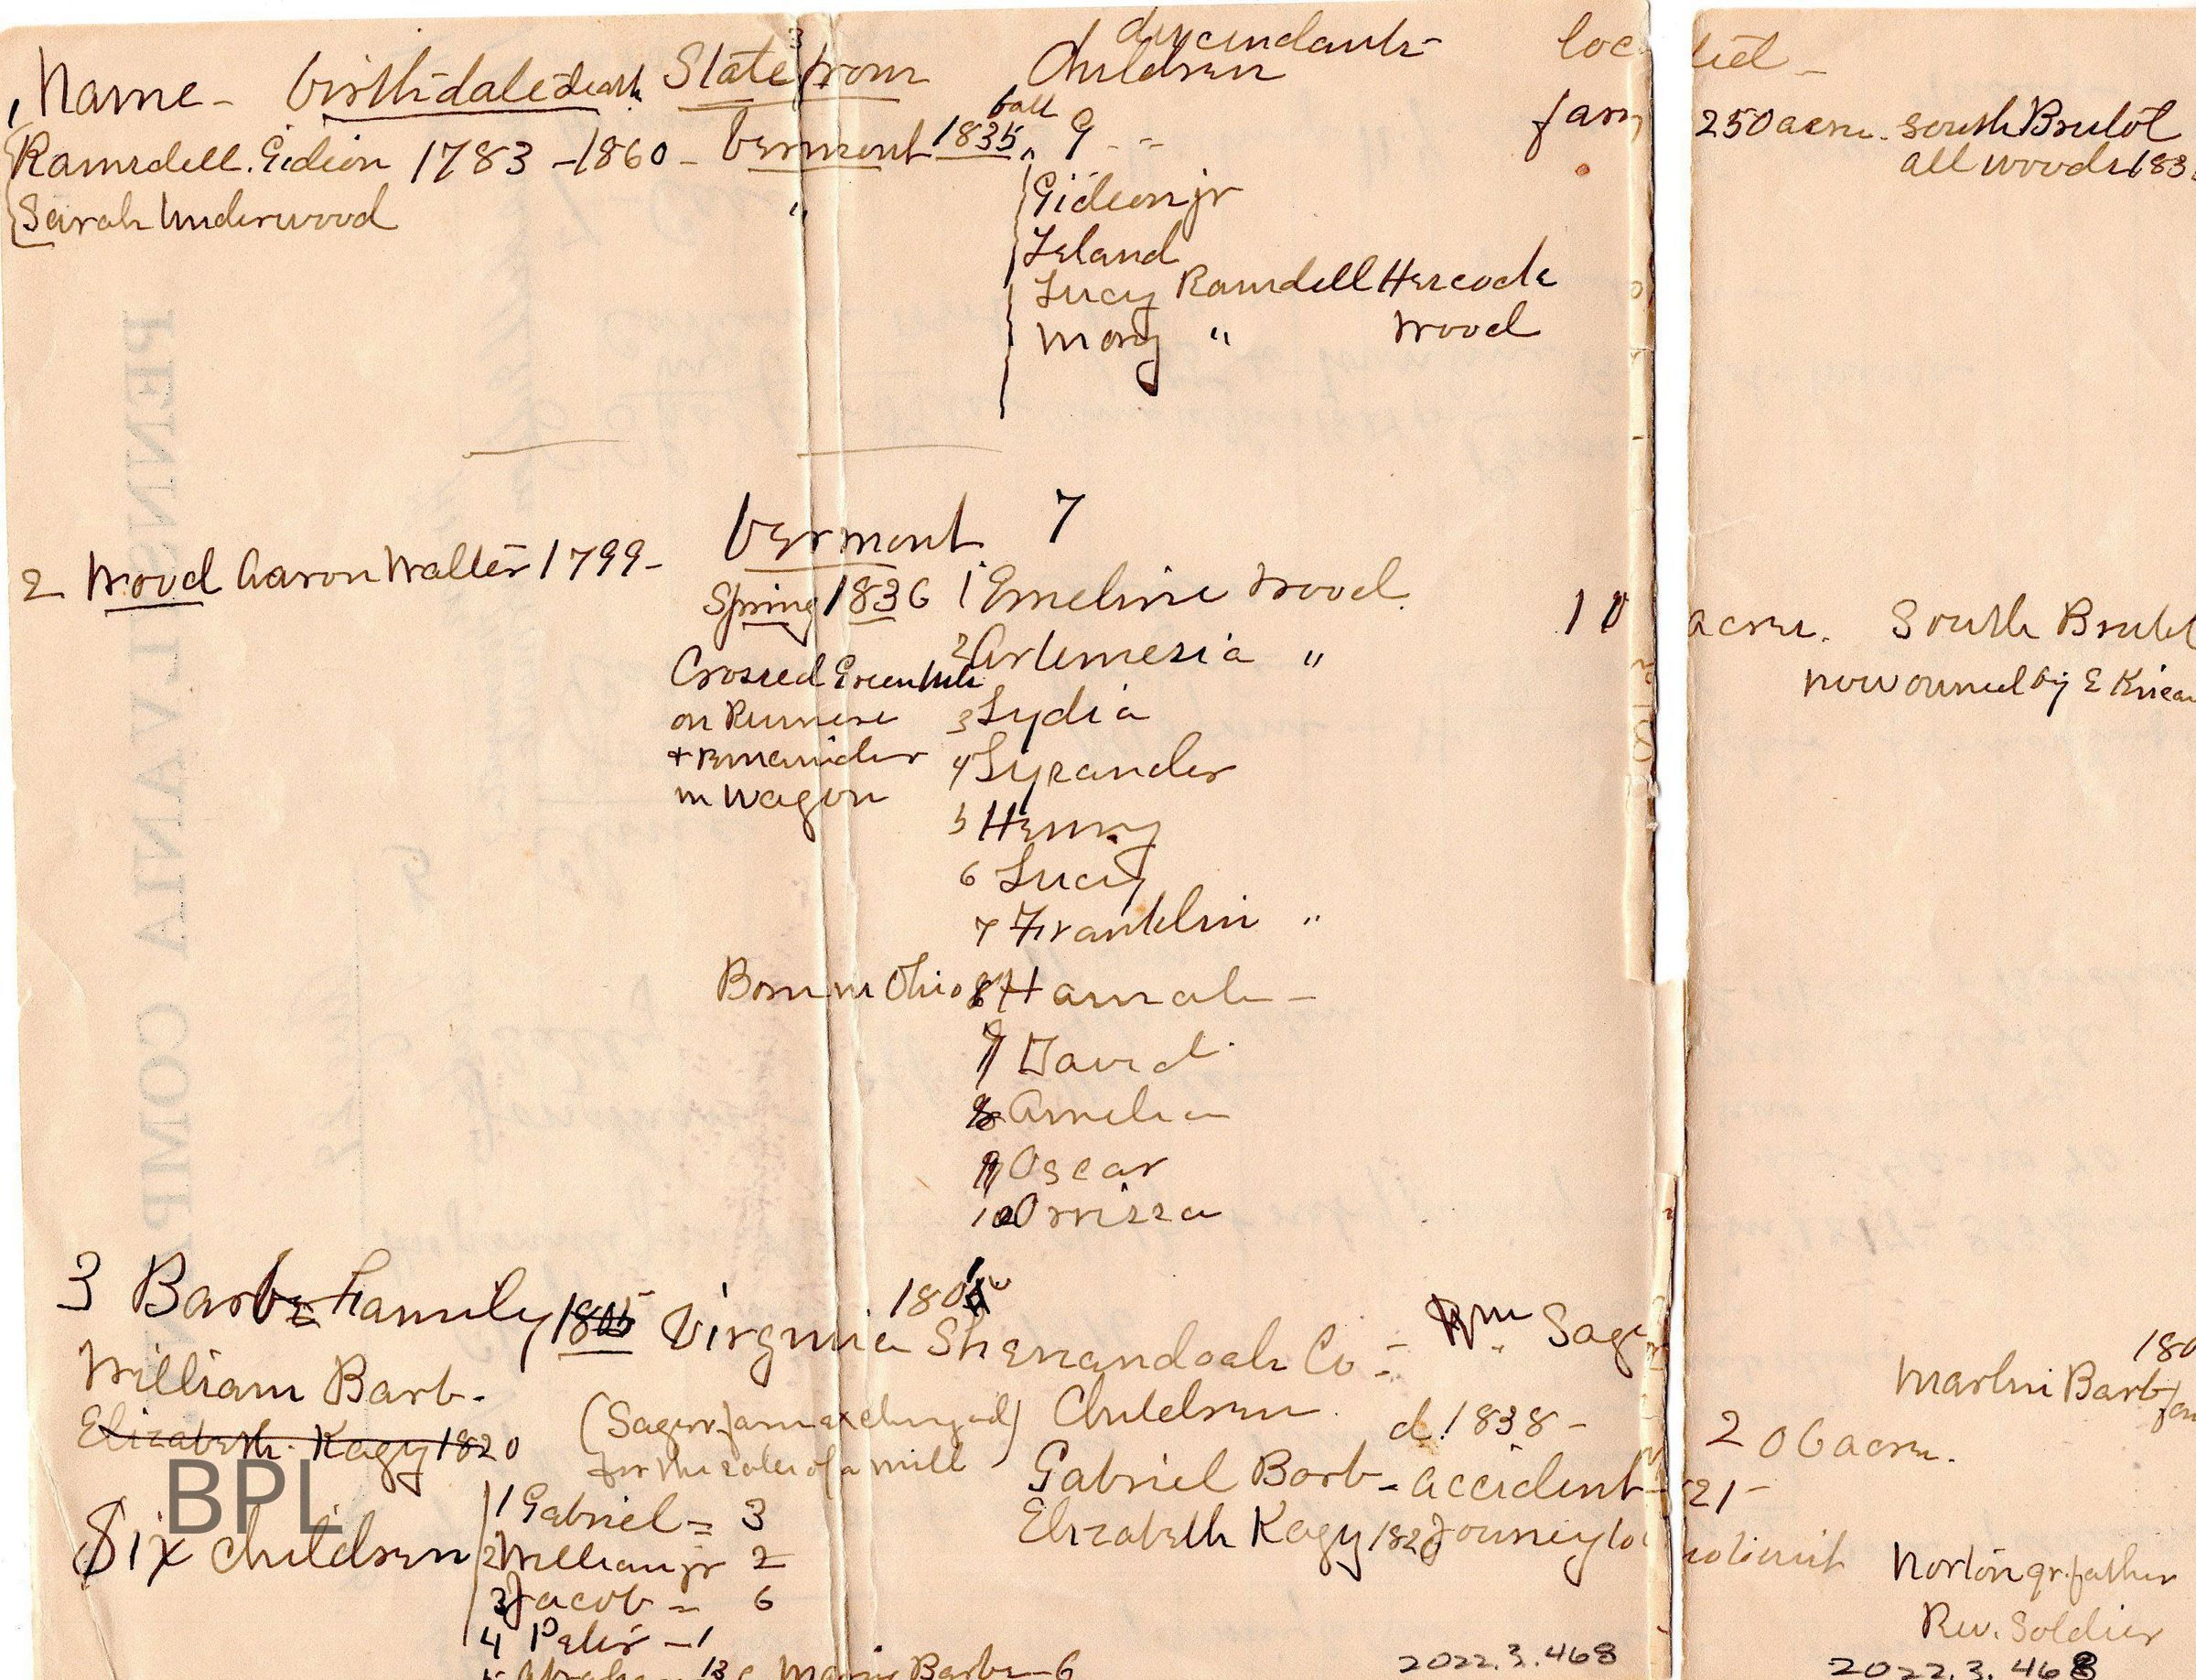 descendants-
1 Name - birthdate death State from Children loc
fall
Ramsdell. Gideon 1783 -1860 - Vermont 1835 9 - - farm
Sarah Underwood "
Gideon jr
Leland
Lucy Ramsdell Hescock
Mary " Wood
Vermont 7
2 Wood Aaron Walter 1799-
Spring 1836 1 Emeline Wood. 10
2 Artemesia "
Crossed Green Mts
on Runners 3 Lydia
+ remainder 4 Lysander
in Wagon
5 Henry
6 Lucy
7 Franklin "
Born in Ohio 8 Hannah -
9 David
Amelia
Oscar
10 Orrissa
3 Barbe Family 1805 Virginia Shenandoah Co = Wm Sage
William Barb.
(Sager farm exchanged) Children d. 1838 -
Elizabeth. Kagy 1820
for the sale of a mill
Gabriel Barb - accident
Elizabeth Kagy 1820 Journey to
Six Children
1 Gabriel = 3
2 William jr 2
3 Jacob = 6
4 Peter -1
Barbe-6
2022.3.468
BPL
PENNSYLVANIA COMP
250 acres. South Brulot
all woods 183
acres. South Brulot
now owned by E
180
Martin Barb
206 acres.
21-
Norton gr. father
Rev. Soldier
2022.3.468